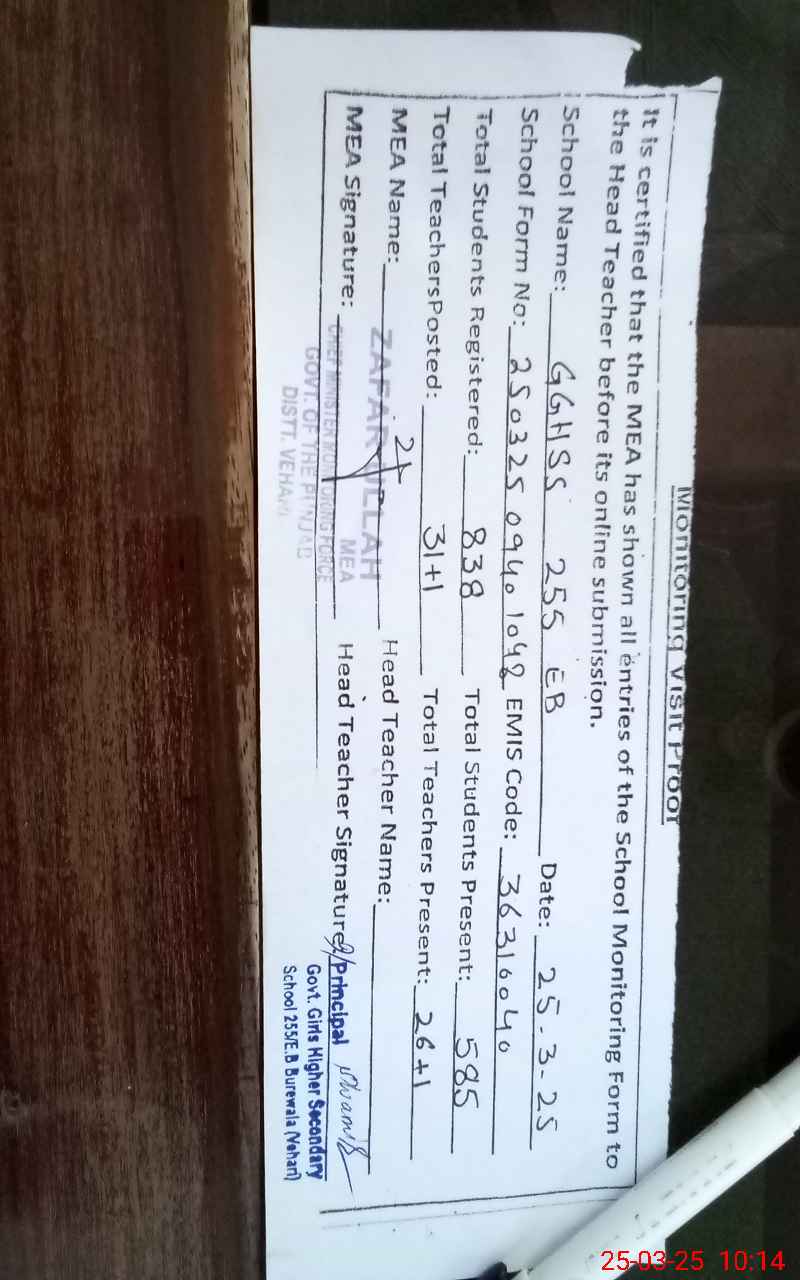 Monitoring Visit Proof
It is certified that the MEA has shown all entries of the School Monitoring Form to
the Head Teacher before its online submission.
School Name: GGHSS 255 EB Date: 25-3-25
School Form No: 250325 0940 1048 EMIS Code: 36316040
Total Students Registered: 838 Total Students Present: 585
Total TeachersPosted: 31+1 Total Teachers Present: 26+1
MEA Name: ZAFAR ULLAH Head Teacher Name:
MEA
MEA Signature: Head Teacher Signature
CHIEF MINISTER MONITORING FORCE
GOVT. OF THE PUNJAB
DISTT. VEHARI
Principal
Govt. Girls Higher Secondary
School 255/E.B Burewala (Vehari)
25-03-25 10:14